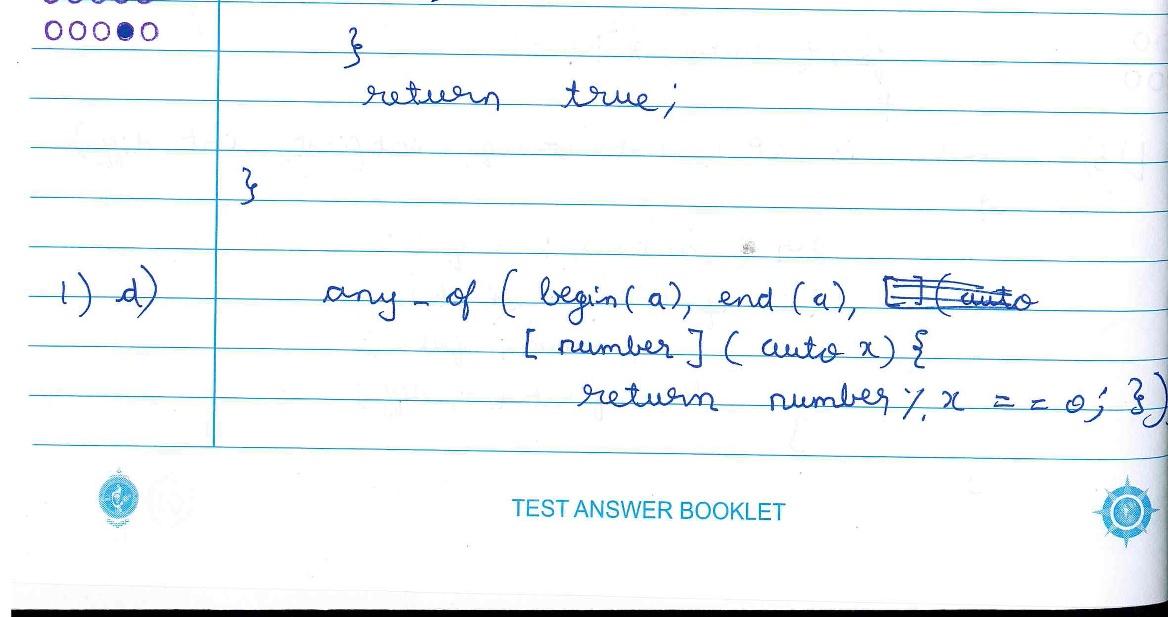 }
return true;
}
1) d) any_of ( begin(a), end(a), [](auto
[number](auto x){
return number % x == 0; })
TEST ANSWER BOOKLET